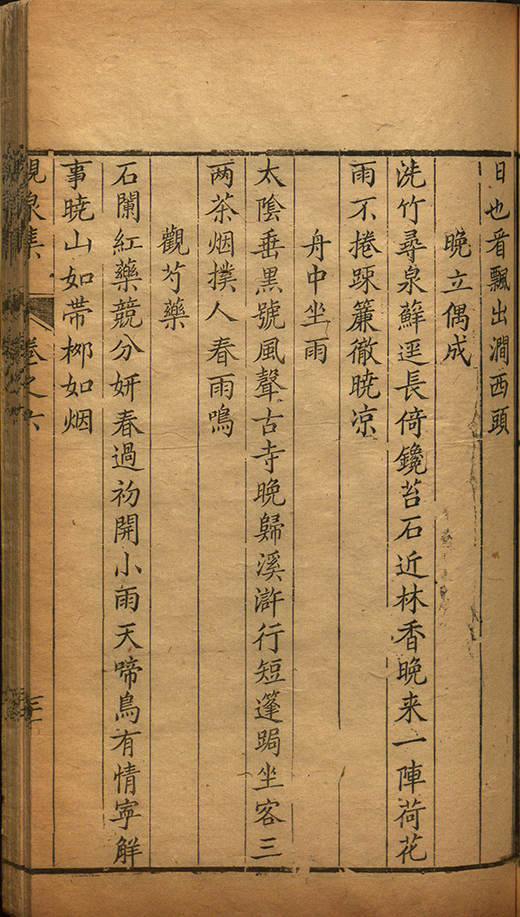 日也香飄出澗西頭
晚立偶成
洗竹尋泉蘚逕長倚鑱苔石近林香晚来一陣荷花
雨不捲踈簾徹曉凉
舟中坐雨
太陰垂黒號風聲古寺晚歸溪滸行短篷跼坐客三
两茶烟撲人春雨鳴
觀芍藥
石闌紅藥競分妍春過初開小雨天啼鳥有情寜解
事曉山如帯栁如烟
峴泉集 卷之六